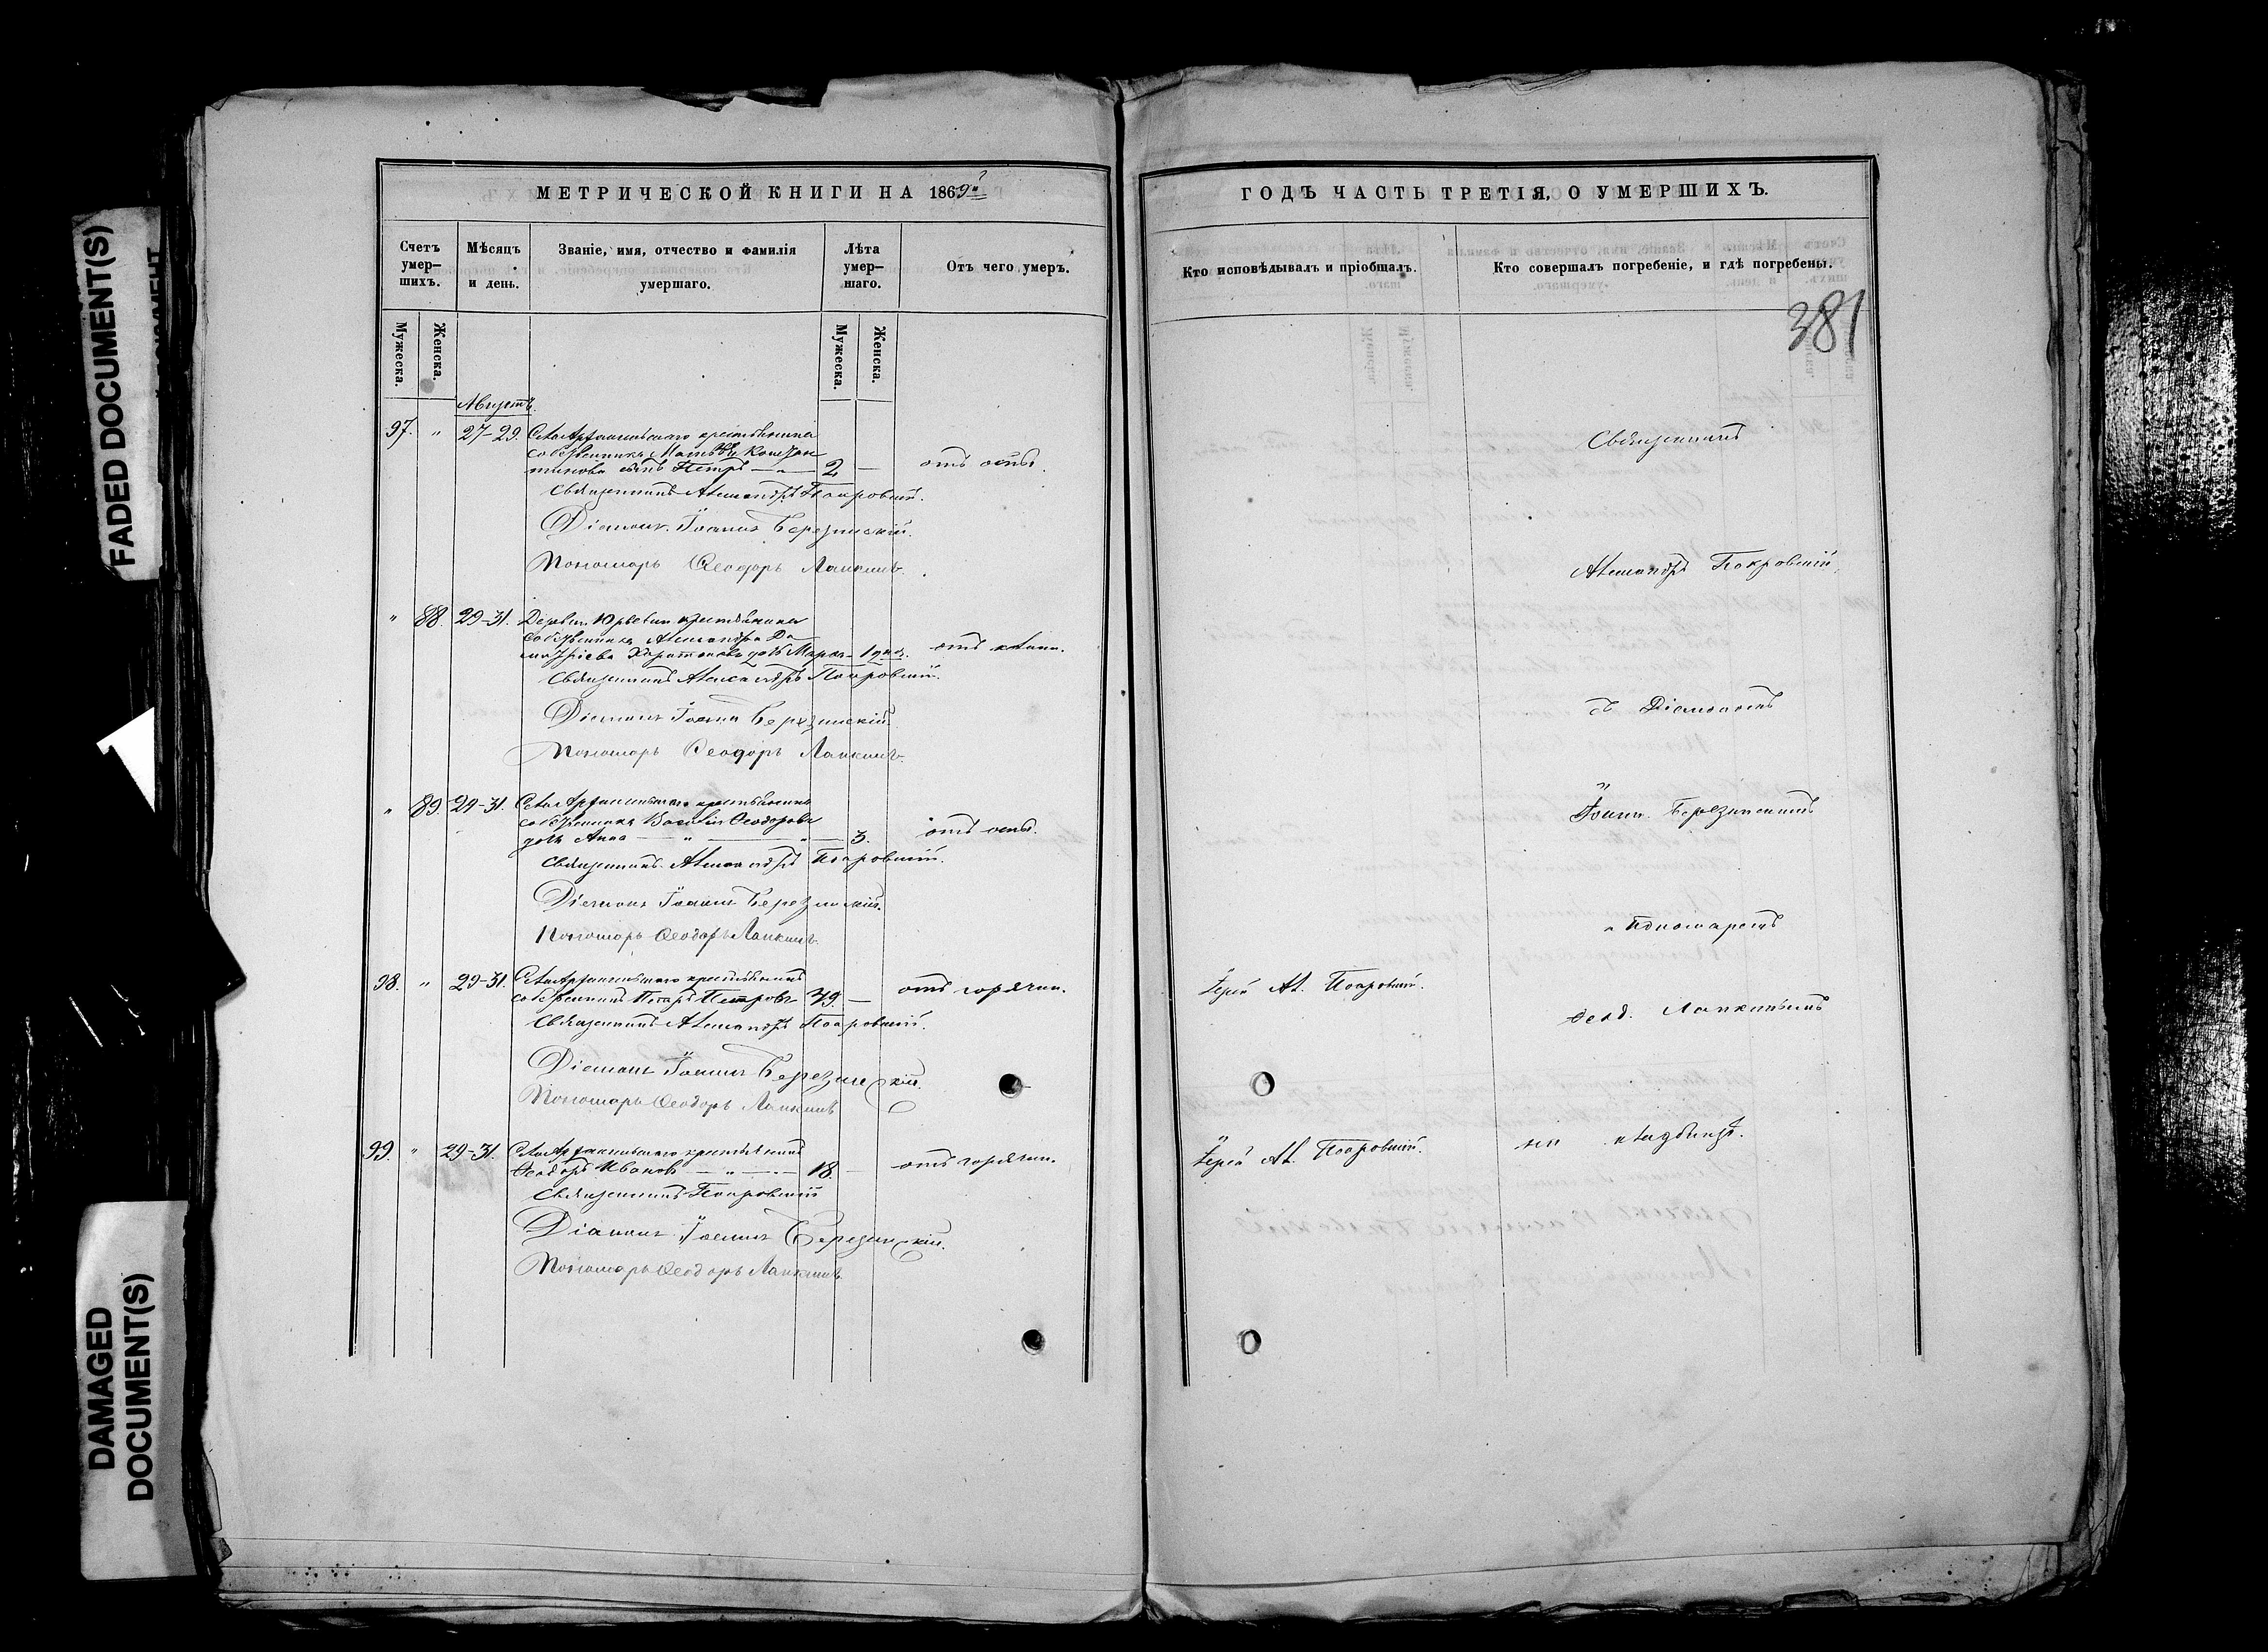 FADED DOCUMENT(S)
DAMAGED DOCUMENT(S)
МЕТРИЧЕСКОЙ КНИГИ НА 1869
Счетъ умершихъ.
Мѣсяцъ и день.
Званіе, имя, отчество и фамилія умершаго.
Лѣта умершаго.
Отъ чего умеръ.
Мужеска.
Женска.
Мужеска.
Женска.
Августъ.
97. " 27-29. Села крестьянина
собственника Констан
тинова сынъ Петръ — " — 2 — отъ оспы.
Священникъ Александръ Покровскій.
Діаконъ Іоаннъ Березинскій.
Пономарь Ѳеодоръ Лапкинъ.
" 88. 29-31. Деревни Юрьевки крестьянина
собственника Александра Ди
митріева дочь Марѳа
Священникъ Александръ Покровскій.
Діаконъ Іоаннъ Березинскій
Пономарь Ѳеодоръ Лапкинъ.
" 89. 29-31. Села крестьянина
собственника Василія Ѳеодорова
дочь Анна — " — 3. отъ оспы.
Священникъ Александръ Покровскій.
Діаконъ Іоаннъ Березинскій.
Пономарь Ѳеодоръ Лапкинъ.
98. " 29-31. Села крестьянинъ
собственникъ Петръ Петровъ 79. — отъ горячки.
Священникъ Александръ Покровскій.
Діаконъ Іоаннъ Березинскій.
Пономарь Ѳеодоръ Лапкинъ
99. " 29-31. Села крестьянинъ
Ѳеодоръ Ивановъ — " — 18. — отъ горячки.
Священникъ Покровскій
Діаконъ Іоаннъ Березинскій.
Пономарь Ѳеодоръ Лапкинъ.
ГОДЪ ЧАСТЬ ТРЕТІЯ, О УМЕРШИХЪ.
Кто исповѣдывалъ и пріобщалъ.
Кто совершалъ погребеніе, и гдѣ погребены.
381
Священникъ
Александръ Покровскій
съ Діакономъ
Іоанн. Березинскимъ
и Пономаремъ
Іерей Ал. Покровскій.
Ѳеод. Лапкинымъ
Іерей Ал. Покровскій.
на кладбищѣ.